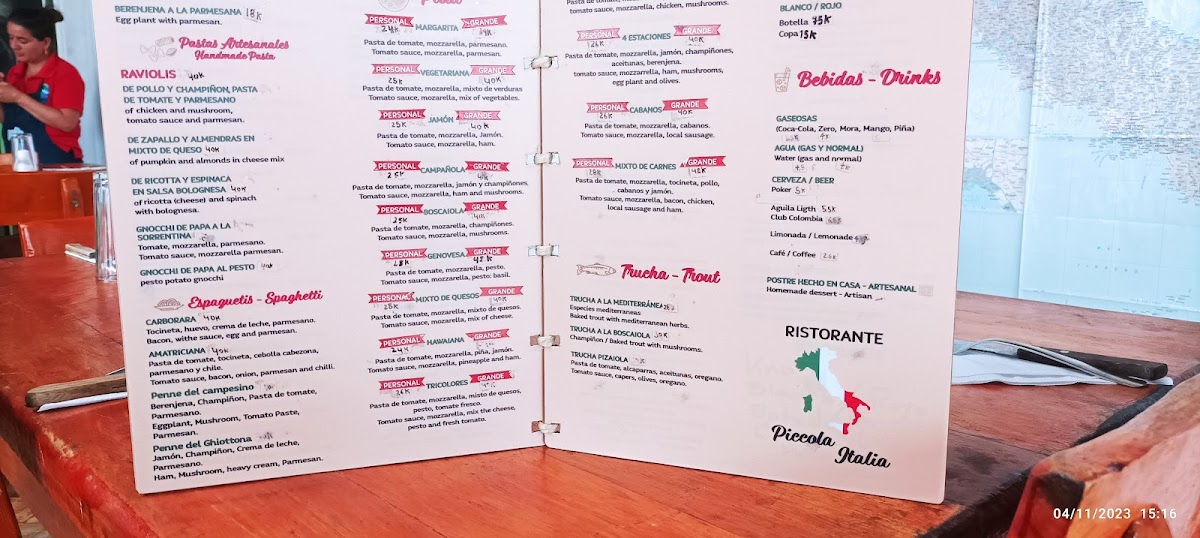 BERENJENA A LA PARMESANA 18K
Egg plant with parmesan.
Pastas Artesanales
Handmade Pasta
RAVIOLIS 40K
DE POLLO Y CHAMPIÑON, PASTA
DE TOMATE Y PARMESANO
of chicken and mushroom,
tomato sauce and parmesan.
DE ZAPALLO Y ALMENDRAS EN
MIXTO DE QUESO 40K
of pumpkin and almonds in cheese mix
DE RICOTTA Y ESPINACA
EN SALSA BOLOGNESA 40K
of ricotta (cheese) and spinach
with bolognesa.
GNOCCHI DE PAPA A LA
SORRENTINA
Tomate, mozzarella, parmesano.
Tomato sauce, mozzarella parmesan.
GNOCCHI DE PAPA AL PESTO 40K
pesto potato gnocchi
Espaguetis - Spaghetti
CARBORARA 40K
Tocineta, huevo, crema de leche, parmesano.
Bacon, withe sauce, egg and parmesan.
AMATRICIANA 40K
Pasta de tomate, tocineta, cebolla cabezona,
parmesano y chile.
Tomato sauce, bacon, onion, parmesan and chilli.
Penne del campesino
Berenjena, Champiñon, Pasta de tomate,
Parmesano.
Eggplant, Mushroom, Tomato Paste,
Parmesan.
Penne del Ghiottona
Jamón, Champiñon, Crema de leche,
Parmesano.
Ham, Mushroom, heavy cream, Parmesan.
PERSONAL 24K MARGARITA GRANDE
Pasta de tomate, mozzarella, parmesano.
Tomato sauce, mozzarella, parmesan.
PERSONAL 25K VEGETARIANA GRANDE 40K
Pasta de tomate, mozzarella, mixto de verduras
Tomato sauce, mozarella, mix of vegetables.
PERSONAL 25K JAMÓN GRANDE 40K
Pasta de tomate, mozzarella, Jamón.
Tomato sauce, mozzarella, ham.
PERSONAL 25K CAMPAÑOLA GRANDE
Pasta de tomate, mozzarella, jamón y champiñones.
Tomato sauce, mozzarella, ham and mushrooms.
PERSONAL 25K BOSCAIOLA GRANDE
Pasta de tomate, mozzarella, champiñones.
Tomato sauce, mozzarella, mushrooms.
PERSONAL 28K GENOVESA GRANDE 42K
Pasta de tomate, mozzarella, pesto.
Tomato sauce, mozzarella, pesto: basil.
PERSONAL 25K MIXTO DE QUESOS GRANDE 40K
Pasta de tomate, mozzarella, mixto de quesos.
Tomato sauce, mozzarella, mix of cheese.
PERSONAL 24K HAWAIANA GRANDE
Pasta de tomate, mozzarella, piña, jamón.
Tomato sauce, mozzarella, pineapple and ham.
PERSONAL 26K TRICOLORES GRANDE
Pasta de tomate, mozzarella, misto de quesos,
pesto, tomate fresco.
Tomato sauce, mozzarella, mix the cheese,
pesto and fresh tomato.
tomato sauce, mozzarella, chicken, mushrooms.
PERSONAL 26K 4 ESTACIONES GRANDE 40K
Pasta de tomate, mozzarella, jamón, champiñones,
aceitunas, berenjena.
tomato sauce, mozzarella, ham, mushrooms,
egg plant and olives.
PERSONAL 26K CABANOS GRANDE 40K
Pasta de tomate, mozzarella, cabanos.
Tomato sauce, mozzarella, local sausage.
PERSONAL 28K MIXTO DE CARNES GRANDE 42K
Pasta de tomate, mozzarella, tocineta, pollo,
cabanos y jamón.
Tomato sauce, mozzarella, bacon, chicken,
local sausage and ham.
Trucha - Trout
TRUCHA A LA MEDITERRÁNEA
Especies mediterraneas
Baked trout with mediterranean herbs.
TRUCHA A LA BOSCAIOLA
Champiñon / Baked trout with mushrooms.
TRUCHA PIZAIOLA
Pasta de tomate, alcaparras, aceitunas, oregano.
Tomato sauce, capers, olives, oregano.
BLANCO / ROJO
Botella 75K
Copa 15K
Bebidas - Drinks
GASEOSAS
(Coca-Cola, Zero, Mora, Mango, Piña)
AGUA (GAS Y NORMAL)
Water (gas and normal)
CERVEZA / BEER
Poker 5K
Aguila Ligth 5.5K
Club Colombia
Limonada / Lemonade
Café / Coffee
POSTRE HECHO EN CASA - ARTESANAL
Homemade dessert - Artisan
RISTORANTE
Piccola
Italia
04/11/2023 15:16